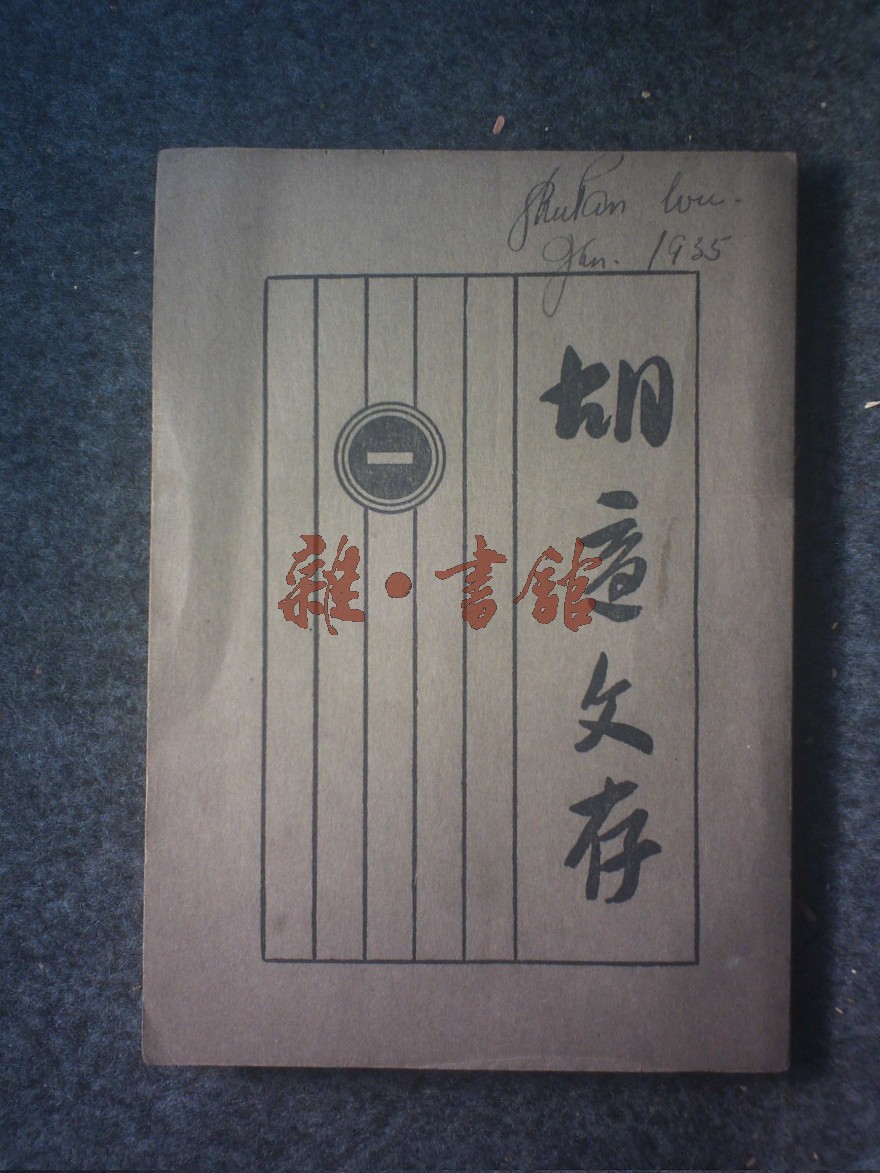 Jan. 1935
胡適文存
一
雜·書館